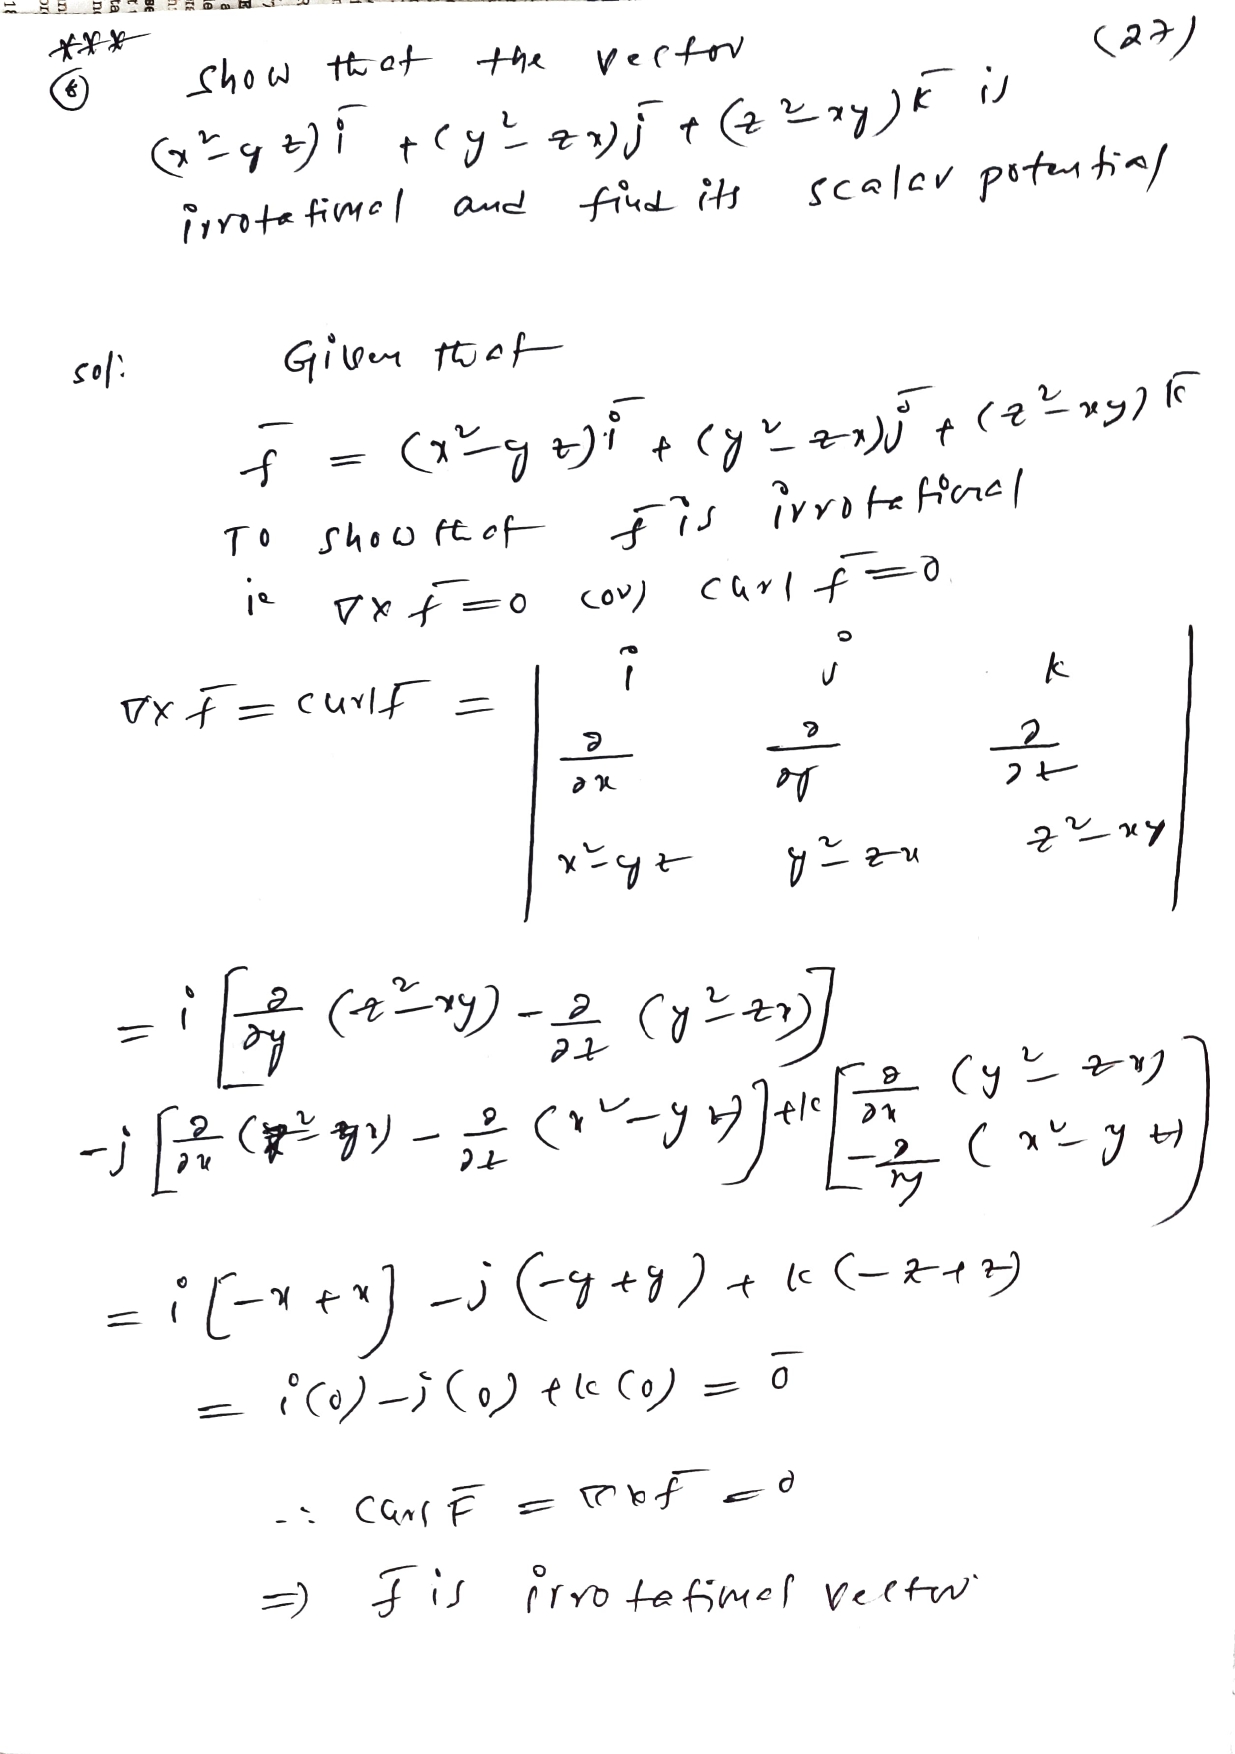 ***
(27)
⑧ Show that the vector
(x²-yz)i̅ + (y²-zx)j̅ + (z²-xy)k̅ is
irrotational and find its scalar potential
sol: Given that
f̅ = (x²-yz)i̅ + (y²-zx)j̅ + (z²-xy)k̅
To show that f̅ is irrotational
ie ∇×f̅ = 0 (or) curl f̅ = 0
∇×f̅ = curl f̅ = | i j k |
| ∂/∂x ∂/∂y ∂/∂z |
| x²-yz y²-zx z²-xy |
= i [∂/∂y (z²-xy) - ∂/∂z (y²-zx)]
-j [∂/∂x (z²-yx) - ∂/∂z (x²-yz)] + k [∂/∂x (y²-zx)
-∂/∂y (x²-yz)]
= i [-x+x] -j (-y+y) + k (-z+z)
= i(0) -j(0) + k(0) = 0̅
∴ Curl F̅ = ∇×f̅ = 0
⇒ f̅ is irrotational vector